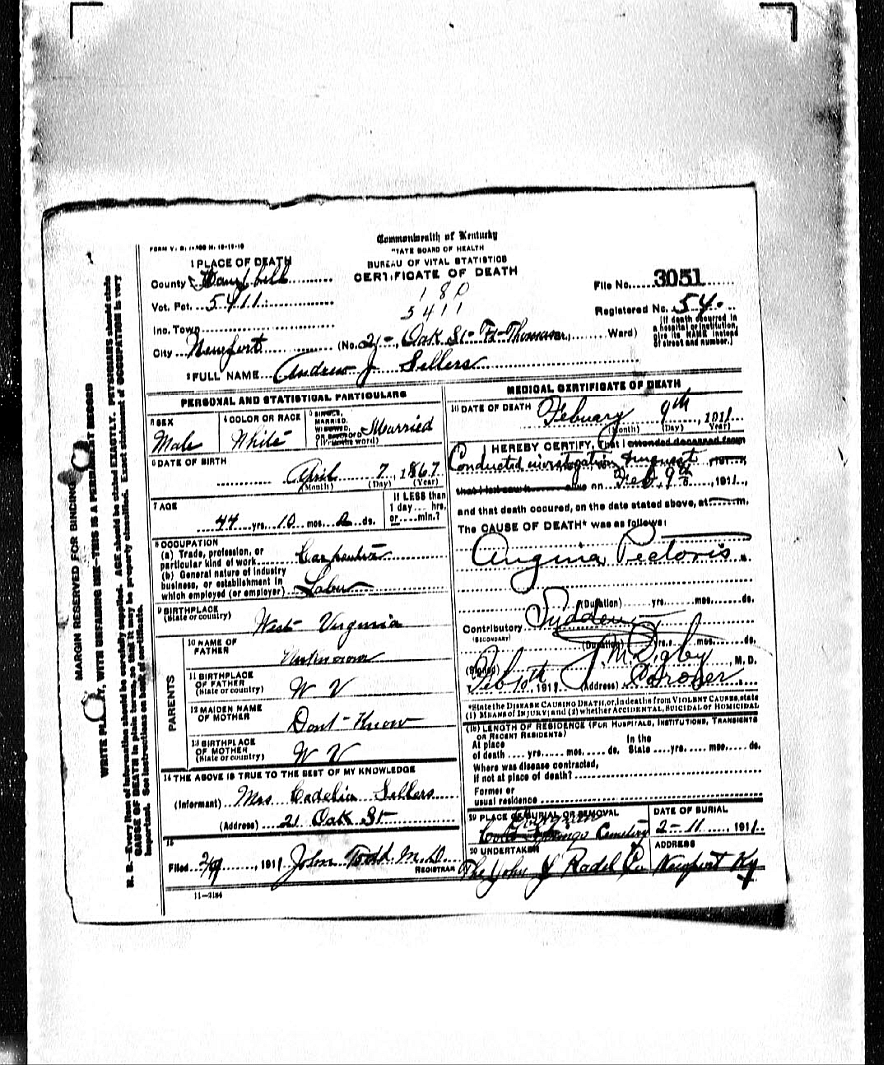 Commonwealth of Kentucky
TATE BOARD OF HEALTH
BUREAU OF VITAL STATISTICS
CERTIFICATE OF DEATH
1 PLACE OF DEATH
County Campbell
Vot. Pct. 5411
180
5411
File No. 3051
Registered No. 54.
[If death occurred in
a hospital or institution,
give its NAME instead
of street and number.]
Inc. Town
City Newport (No. 21-, Oak St- Ft-Thomas, Ward)
2 FULL NAME Andrew J Sellers
PERSONAL AND STATISTICAL PARTICULARS
3 SEX
Male
4 COLOR OR RACE
White
5 SINGLE,
MARRIED,
WIDOWED,
OR DIVORCED
(Write the word)
Married
6 DATE OF BIRTH
April 7, 1867
(Month) (Day) (Year)
7 AGE
44 yrs. 10 mos. 2 ds.
If LESS than
1 day... hrs.
or.... min.?
8 OCCUPATION
(a) Trade, profession, or
particular kind of work Carpenter
(b) General nature of industry
business, or establishment in
which employed (or employer) Labor
9 BIRTHPLACE
(State or country) West Virginia
PARENTS
10 NAME OF
FATHER
Unknown
11 BIRTHPLACE
OF FATHER
(State or country) W V
12 MAIDEN NAME
OF MOTHER
Dont-Know
13 BIRTHPLACE
OF MOTHER
(State or country) W V
14 THE ABOVE IS TRUE TO THE BEST OF MY KNOWLEDGE
(Informant) Mrs Cadelia Sellers
(Address) 21 Oak St-
15
Filed 2/9, 1911 John Todd M.D.
REGISTRAR
11-3184
MEDICAL CERTIFICATE OF DEATH
16 DATE OF DEATH
Febuary 9th, 1911
(Month) (Day) (Year)
I HEREBY CERTIFY, That I attended deceased from
Conducted investigation Inquest, 191
that I last saw h alive on Feb. 9th, 1911,
and that death occured, on the date stated above, at m.
The CAUSE OF DEATH* was as follows:
Angina Pectoris
(Duration) yrs. mos. ds.
Contributory Sudden
(SECONDARY)
(Duration) yrs. mos. ds.
(Signed) Rigby, M.D.
Feb 10th, 1911 (Address) Coroner
*State the DISEASE CAUSING DEATH, or, in deaths from VIOLENT CAUSES, state
(1) MEANS OF INJURY; and (2) whether ACCIDENTAL, SUICIDAL or HOMICIDAL
LENGTH OF RESIDENCE (FOR HOSPITALS, INSTITUTIONS, TRANSIENTS
OR RECENT RESIDENTS)
At place
of death yrs. mos. ds.
In the
State yrs. mos. ds.
Where was disease contracted,
if not at place of death?
Former or
usual residence
19 PLACE OF BURIAL OR REMOVAL
Cemetery
DATE OF BURIAL
2-11, 1911
20 UNDERTAKER
The John J Radel Co
ADDRESS
Newport Ky
MARGIN RESERVED FOR BINDING
WRITE PLAINLY, WITH UNFADING INK—THIS IS A PERMANENT RECORD
N. B.—Every item of information should be carefully supplied. AGE should be stated EXACTLY. PHYSICIANS should state
CAUSE OF DEATH in plain terms, so that it may be properly classified. Exact statement of OCCUPATION is very
important. See instructions on back of certificate.